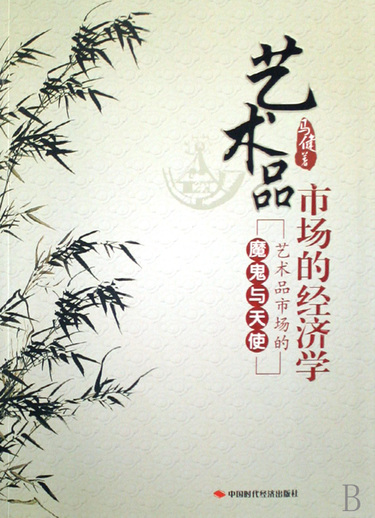 艺术品
马健 著
市场的经济学
艺术品市场的
魔鬼与天使
中国时代经济出版社
B